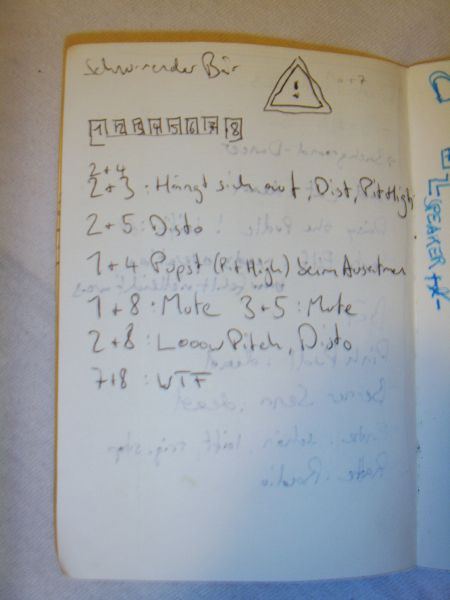 Schwirrender Bär
!
1 2 3 4 5 6 7 8
2+4
2+3: Hängt sich auf, Dist, PitHigh
2+5: Disto
1+4 Pupst (PitHigh) beim Ausatmen
1+8: Mute 3+5: Mute
2+8: Looow Pitch, Disto
7+8: WTF
SPEAKER